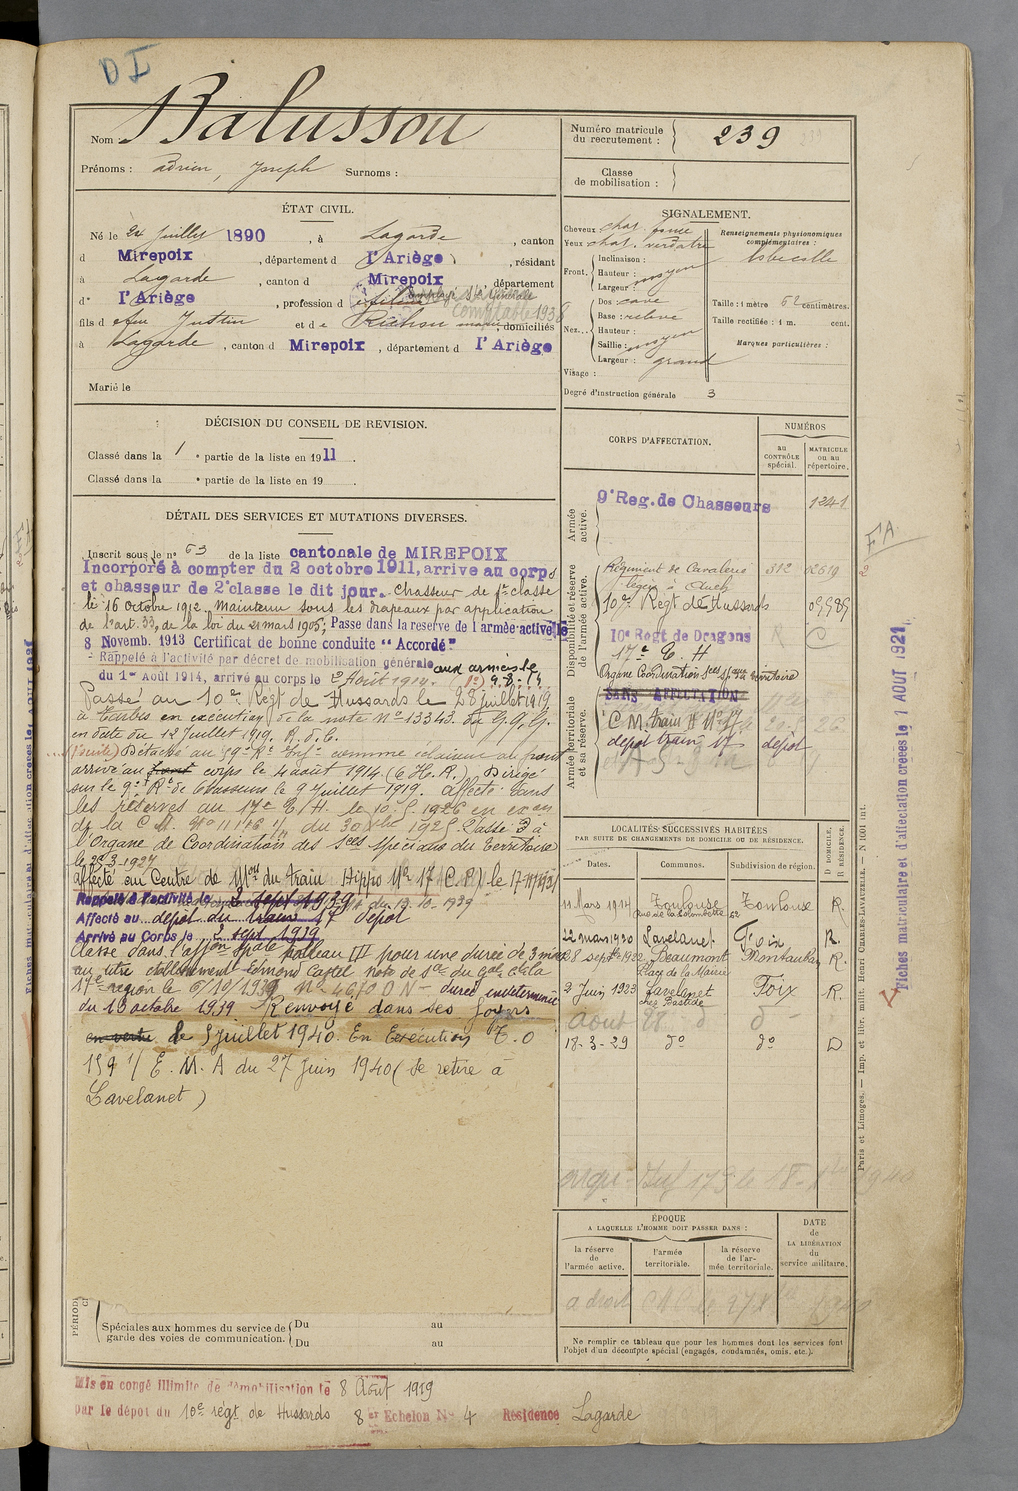 D I
Nom : Balussou
Prénoms : Adrien, Joseph Surnoms :
Numéro matricule du recrutement : 239
Classe de mobilisation :
ÉTAT CIVIL.
Né le 24 juillet 1890, à Lagarde, canton
d Mirepoix, département d l'Ariège, résidant
à Lagarde, canton d Mirepoix, département
d° l'Ariège, profession d
Comptable 1938
fils d efeu Justin et de Pichou marie, domiciliés
à Lagarde, canton d Mirepoix, département d l'Ariège
Marié le
SIGNALEMENT.
Cheveux chat. foncé
Yeux chat. verdatre
Front. Inclinaison :
Hauteur : moyen
Largeur :
Nez... Dos : cave
Base : relevé
Hauteur :
Saillie : moyen
Largeur : grand
Visage :
Renseignements physionomiques complémentaires :
Taille : 1 mètre 62 centimètres.
Taille rectifiée : 1 m. cent.
Marques particulières :
Degré d'instruction générale 3
DÉCISION DU CONSEIL DE REVISION.
Classé dans la 1 e partie de la liste en 1911.
Classé dans la e partie de la liste en 19 .
DÉTAIL DES SERVICES ET MUTATIONS DIVERSES.
Inscrit sous le n° 53 de la liste cantonale de MIREPOIX
Incorporé à compter du 2 octobre 1911, arrivé au corps
et chasseur de 2e classe le dit jour. Chasseur de 1re classe
le 16 octobre 1912. Maintenu sous les drapeaux par application
de l'art. 33, de la loi du 21 mars 1905, Passé dans la réserve de l'armée active le
8 Novemb. 1913 Certificat de bonne conduite "Accordé"
Rappelé à l'activité par décret de mobilisation générale aux armées le
du 1er Août 1914, arrivé au corps le 2 Août 1914. 9.8.14
Passé au 10e Regt de Hussards le 28 juillet 1919
à Tarbes en exécution de la note No 13343 du G.Q.G.
en date du 12 Juillet 1919. R. d. C.
(suite) Détaché au 59e Rt Infie comme éclaireur au front
arrivé au front corps le 4 août 1914 (C. H. R.) Dirigé
sur le 9e Rt de Chasseurs le 9 Juillet 1919. affecté dans
les réserves au 17e E. H. le 10 1926 en exon
de la C. M. No 11176 1/11 du 30 Xbre 1925. Passé à
l'Organe de Coordination des Sces spéciaux du Territoire
le 22-3-1927
affecté au Centre de Mon du Train Hippo No 17 (C.P.) le
Rappelé à l'activité le 3 sept 1939
Affecté au dépôt du train 17 dépôt
Arrivé au Corps le 3 sept 1939
Classé dans l'affon spéle tableau III pour une durée de 3 mois
au titre établissement Edmond Castel note de Sce du Gal Ct la
17e région le 6/10/1939 No 4670 O N - durée indéterminée
du 10 octobre 1939 Renvoyé dans ses foyers
en vertu le 5 juillet 1940. En Exécution T.O
159 1/ E. M. A du 27 juin 1940 (se retire à
Lavelanet)
CORPS D'AFFECTATION.
NUMÉROS
au CONTRÔLE spécial.
MATRICULE ou au répertoire.
Armée active.
9e Reg. de Chasseurs 1241
Disponibilité et réserve de l'armée active.
Régiment de Cavalerie 312 02619
légère à Auch
10e Regt de Hussards 09989
10e Regt de Dragons R C
17e E. H
Organe Coordination Sces spaux du territoire
Armée territoriale et sa réserve.
SANS AFFECTATION
C M train H No 17
dépôt train 17 dépôt
LOCALITÉS SUCCESSIVES HABITÉES
PAR SUITE DE CHANGEMENTS DE DOMICILE OU DE RÉSIDENCE.
Dates. Communes. Subdivision de région. D DOMICILE. R RÉSIDENCE.
11 Mars 1914 Toulouse Toulouse R.
Rue de la Colombette 62
22 mars 1920 Lavelanet Foix R.
28 septbre 1922 Beaumont Montauban R.
Place de la Mairie
2 Juin 1923 Lavelanet Foix R.
chez Bastide
Août 28 d d
18-3-29 d° d° D
ÉPOQUE
A LAQUELLE L'HOMME DOIT PASSER DANS :
la réserve de l'armée active.
l'armée territoriale.
la réserve de l'armée territoriale.
DATE DE LA LIBÉRATION du service militaire.
Ne remplir ce tableau que pour les hommes dont les services font
l'objet d'un décompte spécial (engagés, condamnés, omis, etc.).
Spéciales aux hommes du service de garde des voies de communication.
Du au
Du au
Mis en congé illimité de démobilisation le 8 Août 1919
par le dépôt du 10e régt de Hussards 8 er Echelon No 4 Résidence Lagarde
FA
Fiches matriculaire et d'affectation créées le 1 AOUT 1921
Paris et Limoges. — Imp. et libr. milit. Henri CHARLES-LAVAUZELLE. — N° 1001 int.